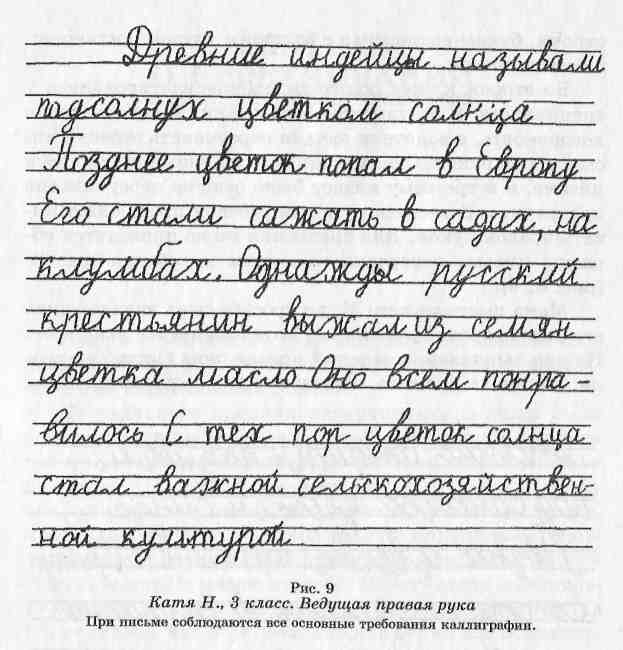 Древние индейцы называли
подсолнух цветком солнца
Позднее цветок попал в Европу
Его стали сажать в садах, на
клумбах. Однажды русский
крестьянин выжал из семян
цветка масло Оно всем понра-
вилось С тех пор цветок солнца
стал важной сельскохозяйствен-
ной культурой
Рис. 9
Катя Н., 3 класс. Ведущая правая рука
При письме соблюдаются все основные требования каллиграфии.